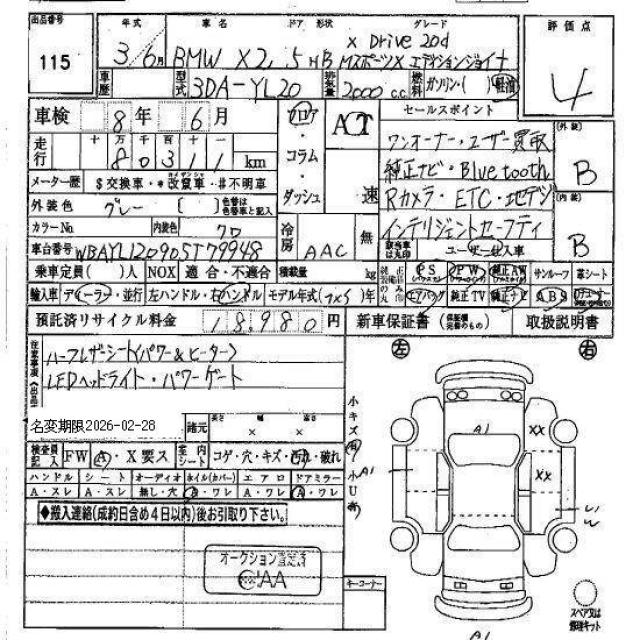 出品番号 年式 車名 ドア 形状 グレード 評価点
115 3/6月 BMW X2. 5 HB x Drive 20d
MスポーツX エディションジョイ+
4
車歴 型式 3DA-YL20 排気量 2000 c.c. 燃料 ガソリン・( ) 軽油
車検 8年 6月 フロア AT セールスポイント
走行 十万千百十 80311 km コラム 速
ワンオーナー・ユーザー買取
純正ナビ・Bluetooth
Rカメラ・ETC・地デジ
インテリジェントセーフティ
(外装) B
(内装) B
メーター歴 $交換車・*改竄車・#不明車 ダッシュ
外装色 グレー ( ) 色替は色替車と記入
カラーNo. 内装色 クロ 冷房 AAC 無
該当車は丸印 ユーザー仕入車
車台番号 WBAYL120905T79948
乗車定員( )人 NOX 適合・不適合 積載量 kg
純正装備品の丸印 PS PW 純正AW サンルーフ 革シート
輸入車 ディーラー・並行 左ハンドル・右ハンドル モデル年式( )年
エアバッグ 純正TV 純正ナビ ABS
預託済リサイクル料金 18,980円 新車保証書 (保証継続完備のもの) 取扱説明書
注意事項(出品) ハーフレザーシート(パワー&ヒーター)
LEDヘッドライト・パワーゲート
名変期限2026-02-28
諸元 長さ 幅 高さ
× ×
検査員記入 FW A・X要ス 室内 シート コゲ・穴・キズ・汚れ・破れ
ハンドル シート オーディオ ホイル(カバー) エアロ ドアミラー
A・スレ A・スレ 無し・穴 A・ワレ A・ワレ A・ワレ
◆搬入連絡(成約日含め4日以内)後お引取り下さい。
オークション査定済
JAA
キーコーナー
左 右
小キズ有 小U有
A1
A1
XX
XX
A1
スペア又は修理キット